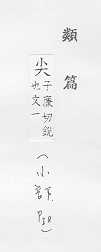 類篇
尖子廉切銳
也文一
(小韻